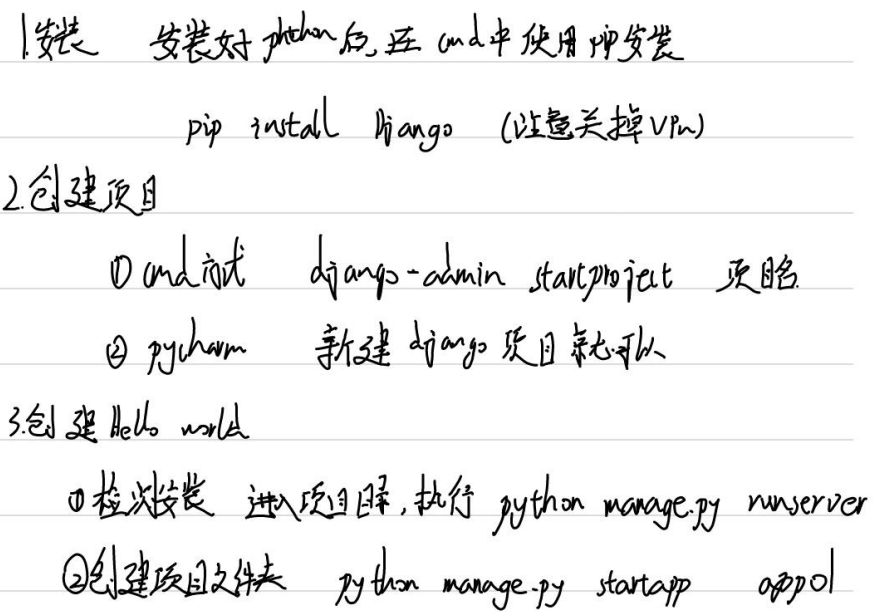 1.安装 安装好 phthon后,在cmd中使用pip安装
pip install Django (注意关掉VPn)
2.创建项目
① cmd方式 django-admin startproject 项目名
② pycharm 新建django项目就可以
3.创建Hello world
①检测安装 进入项目目录,执行 python manage.py runserver
②创建项目文件夹 python manage.py startapp app01